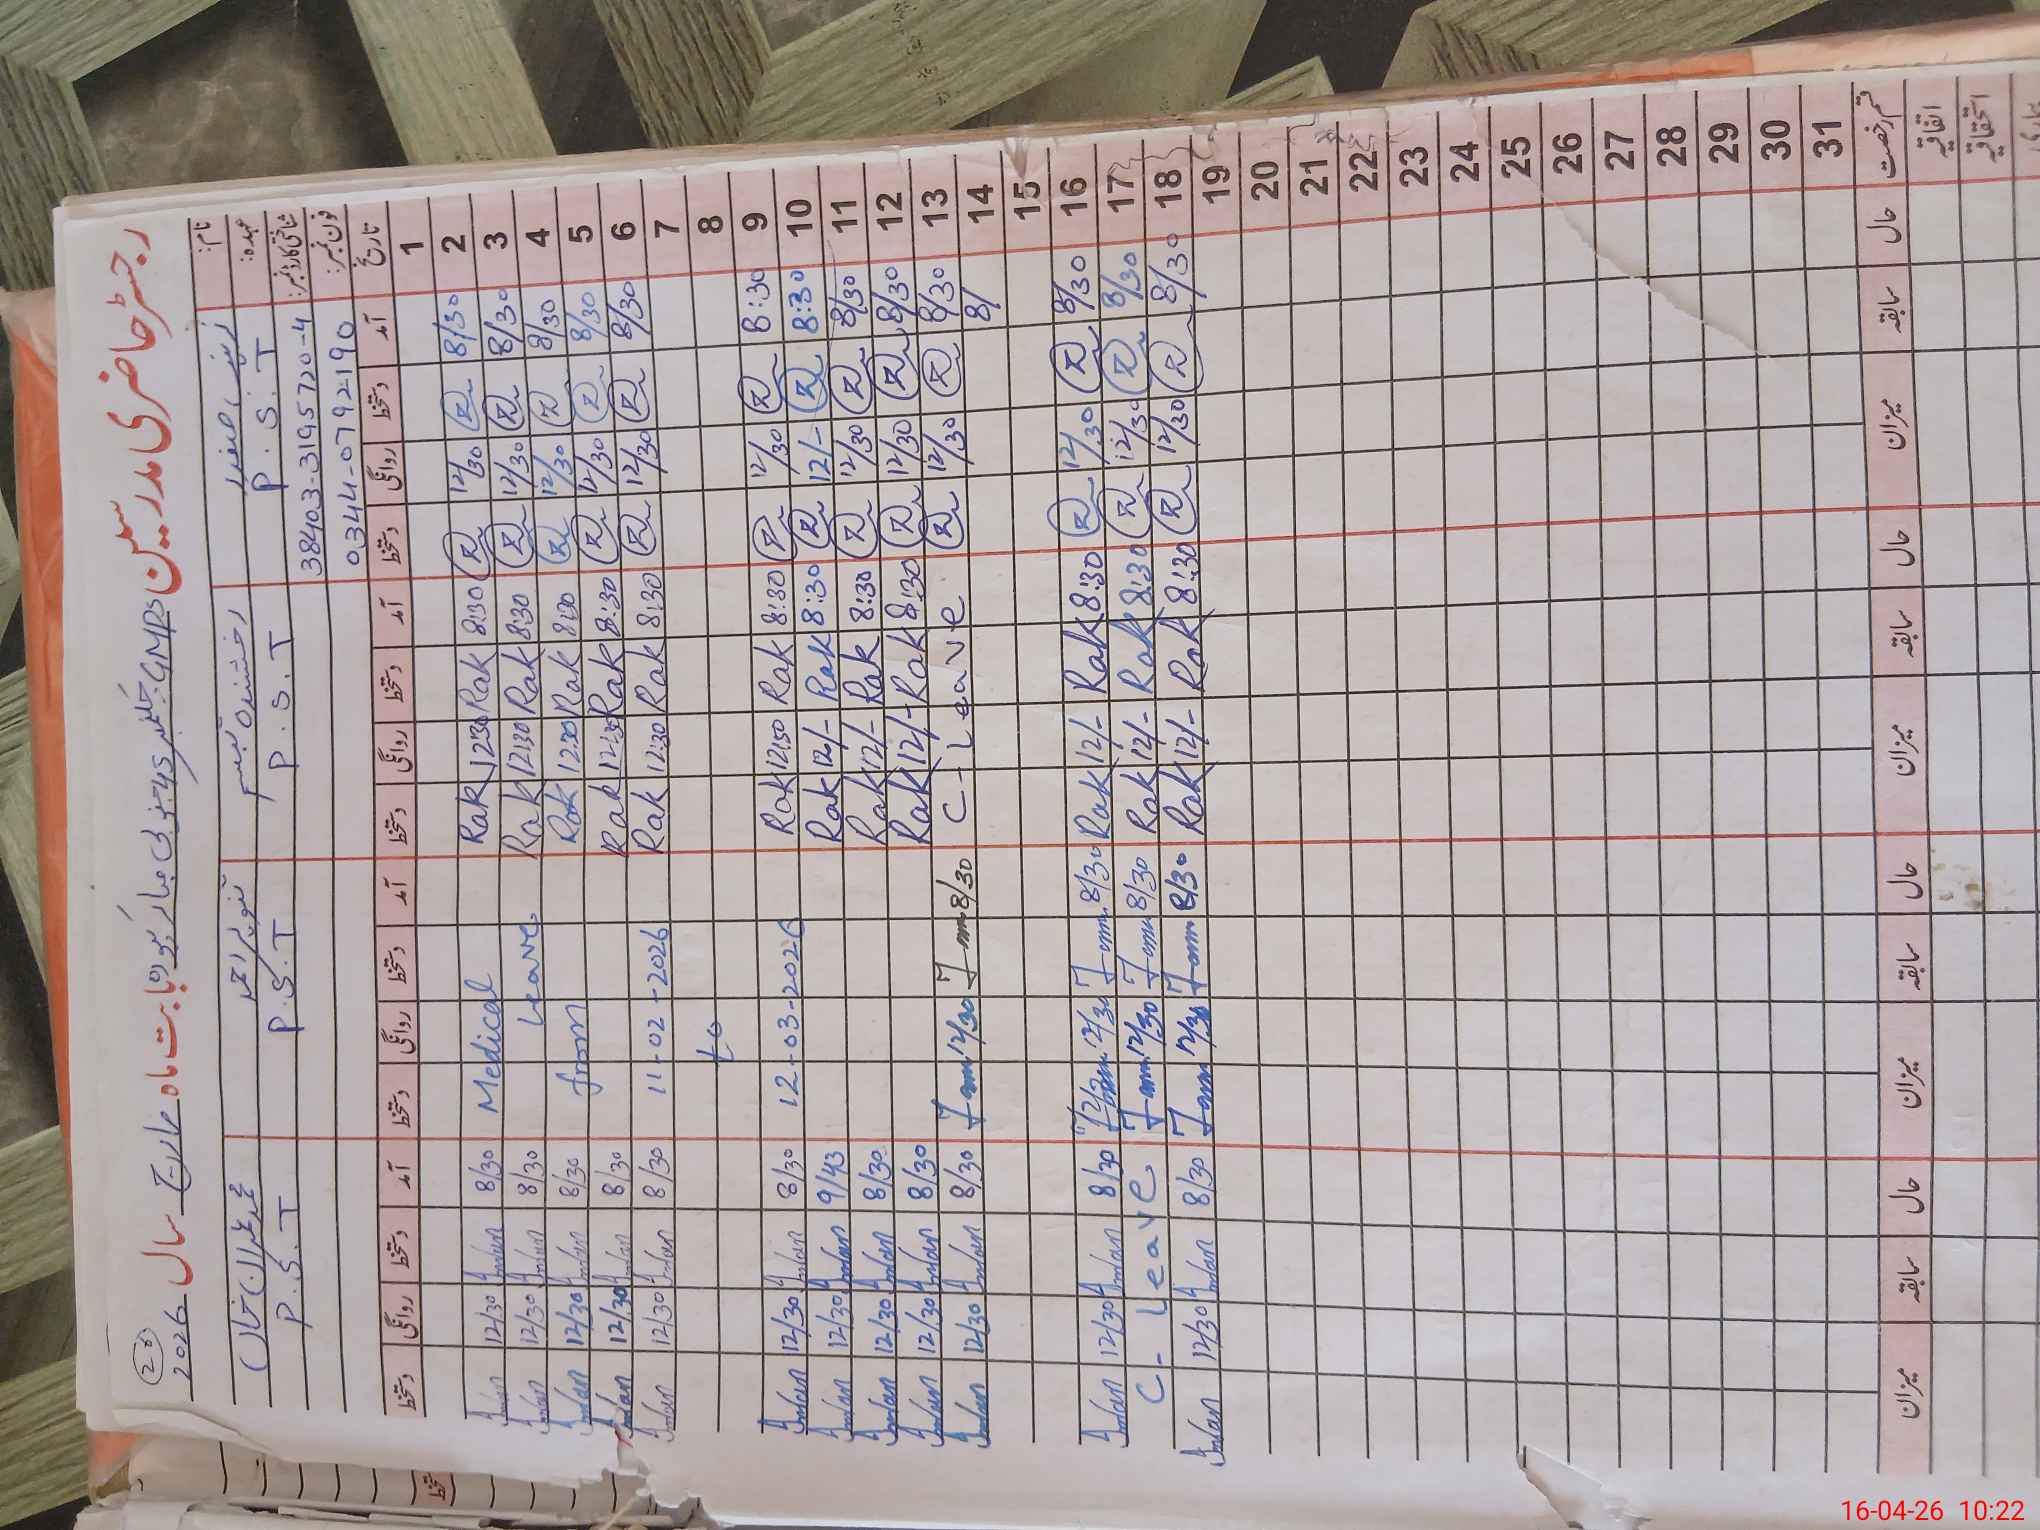 رجسٹر حاضری مدرسین GMPS بابت ماہ مارچ سال 2026
نام: تنویر احمد
عہدہ: P.S.T P.S.T P.S.T P.S.T
شناختی کارڈ نمبر: 38403-3195720-4
فون نمبر: 0344-0792190
تاریخ آمد دستخط روانگی دستخط آمد دستخط روانگی دستخط آمد دستخط روانگی دستخط آمد دستخط روانگی دستخط
1
2 8/30 12/30 8:30 Rak 12:30 Rak Medical 8/30 Imran 12/30 Imran
3 8/30 12/30 8:30 Rak 12:30 Rak Leave 8/30 Imran 12/30 Imran
4 8/30 12/30 8:30 Rak 12:30 Rak from 8/30 Imran 12/30 Imran
5 8/30 12/30 8:30 Rak 12:30 Rak 8/30 Imran 12/30 Imran
6 8/30 12/30 8:30 Rak 12:30 Rak 11-02-2026 8/30 Imran 12/30 Imran
7
8 to
9 8:30 12/30 8:30 Rak 12:50 Rak 12-03-2026 8/30 Imran 12/30 Imran
10 8:30 12/- 8:30 Rak 12/- Rak 9/43 Imran 12/30 Imran
11 8/30 12/30 8:30 Rak 12/- Rak 8/30 Imran 12/30 Imran
12 8/30 12/30 8:30 Rak 12/- Rak 8/30 Imran 12/30 Imran
13 8/30 12/30 C-Leave 8/30 12/30 8/30 Imran 12/30 Imran
14 8/
15
16 8/30 12/30 8:30 Rak 12/- Rak 8/30 12/30 8/30 Imran 12/30 Imran
17 8/30 12/30 8:30 Rak 12/- Rak 8/30 12/30 C-Leave
18 8/30 12/30 8:30 Rak 12/- Rak 8/30 12/30 8/30 Imran 12/30 Imran
19
20
21
22
23
24
25
26
27
28
29
30
31
قسم رخصت حال سابقہ میزان حال سابقہ میزان حال سابقہ میزان حال سابقہ میزان
اتفاقیہ
استحقاقیہ
16-04-26 10:22